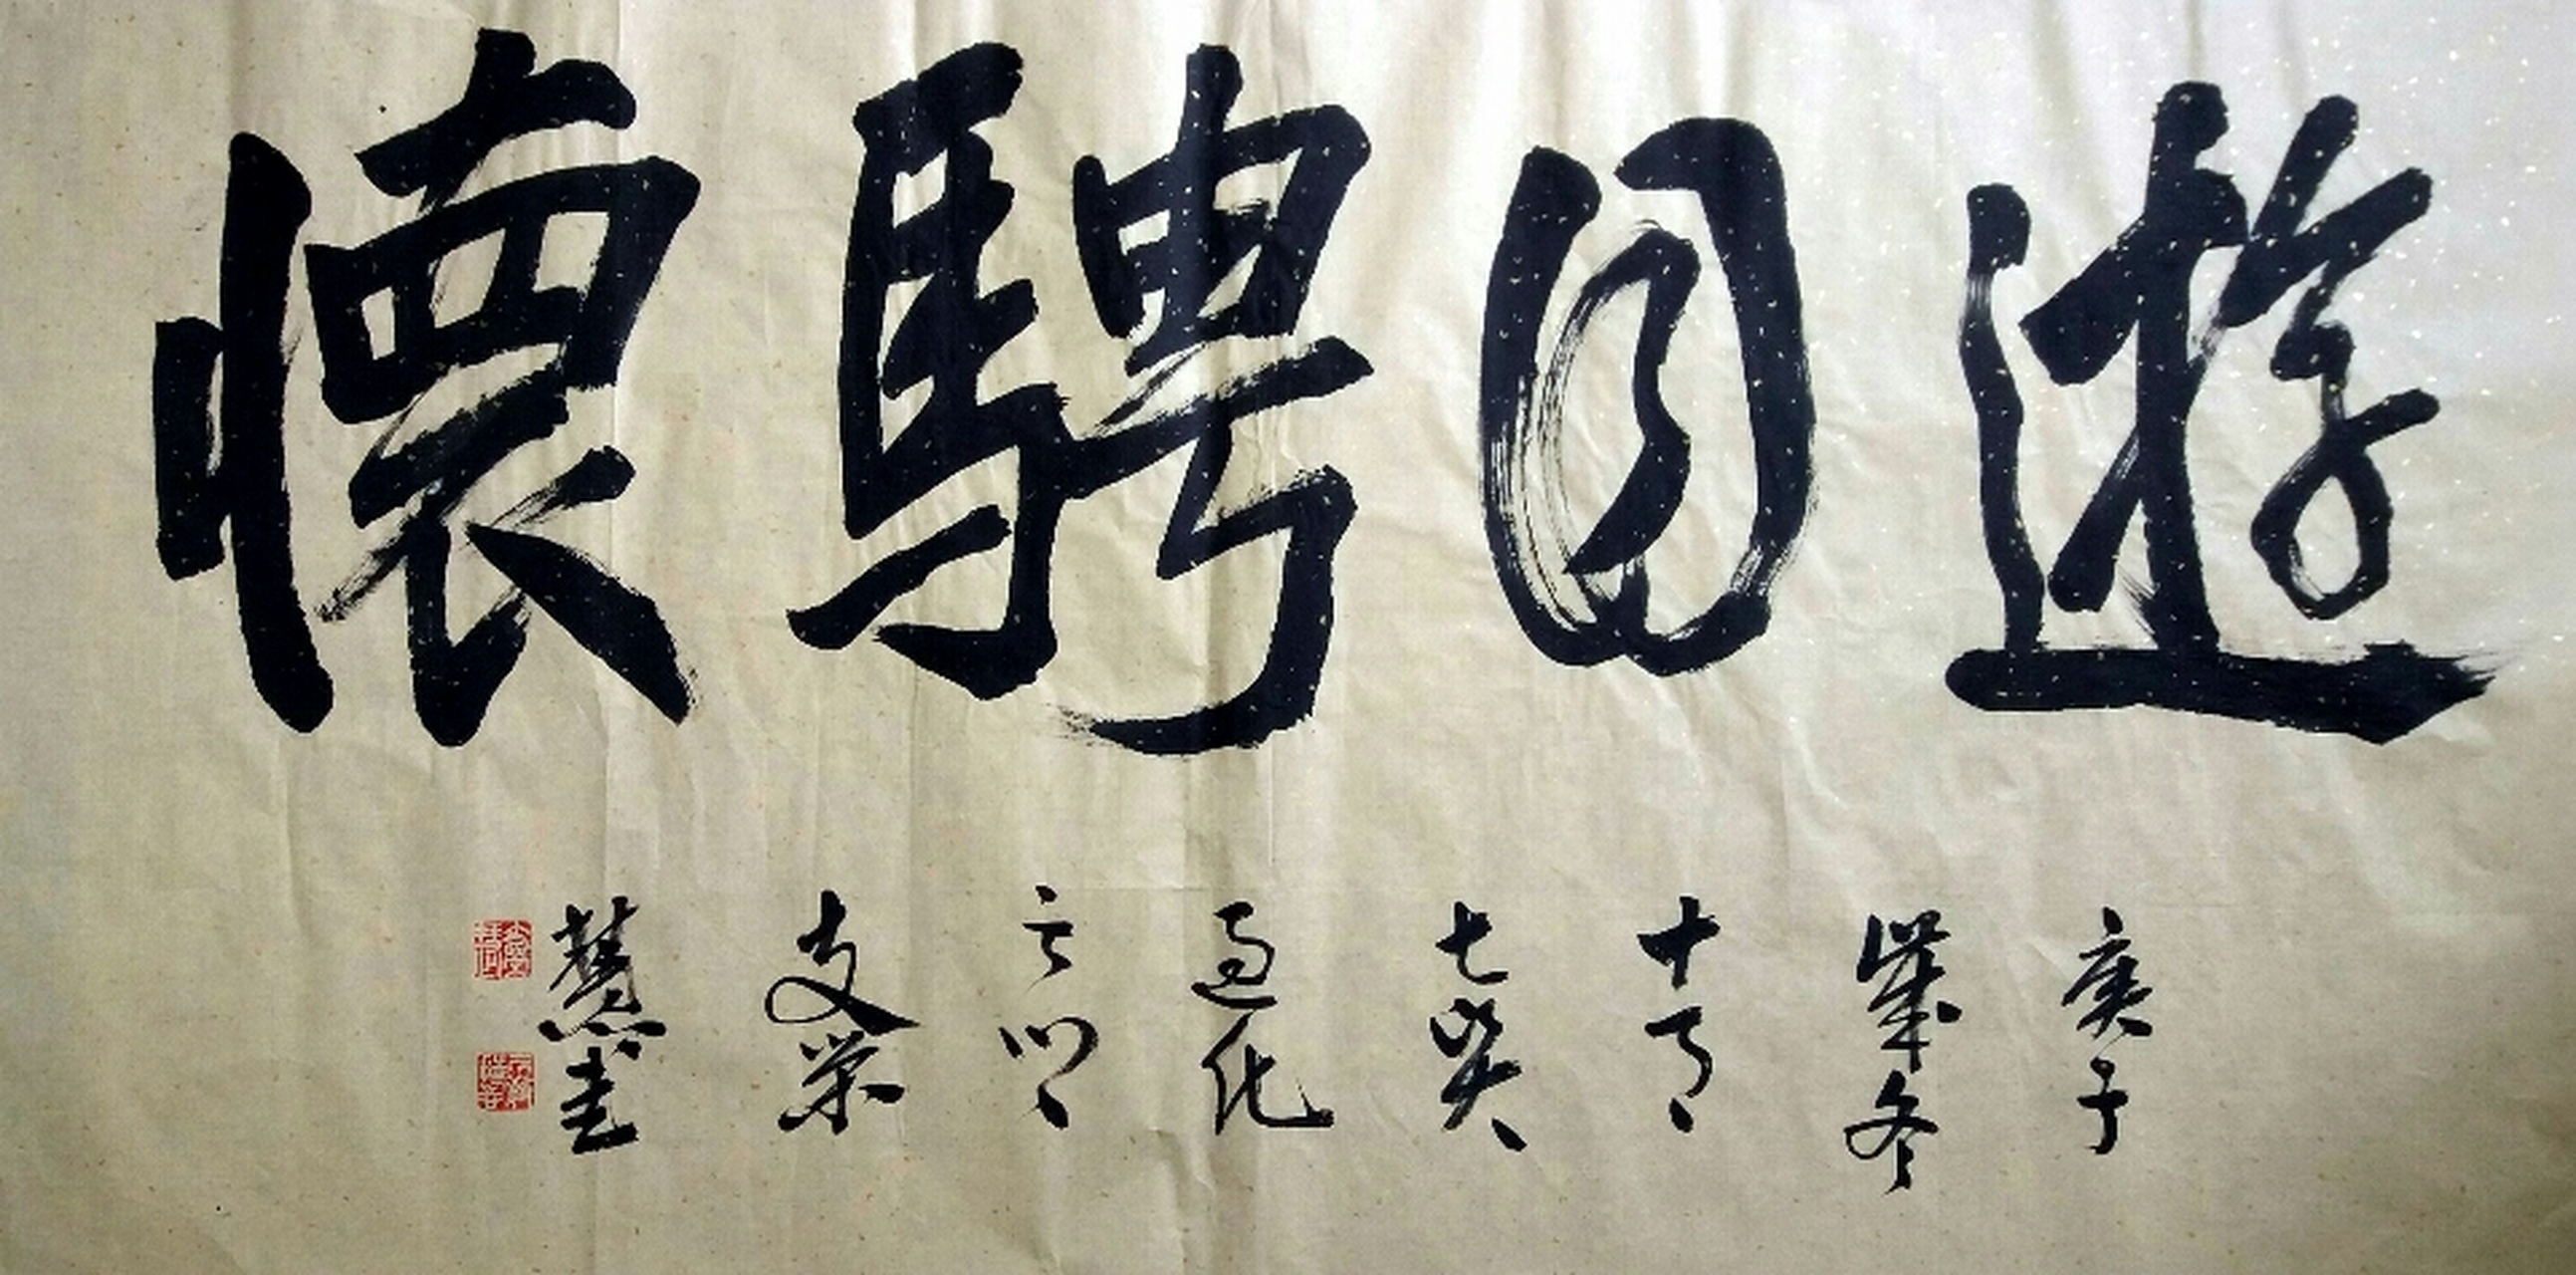 遊目騁懷
庚子
歲冬
十月
七癸
過化
之川
支榮
慧書